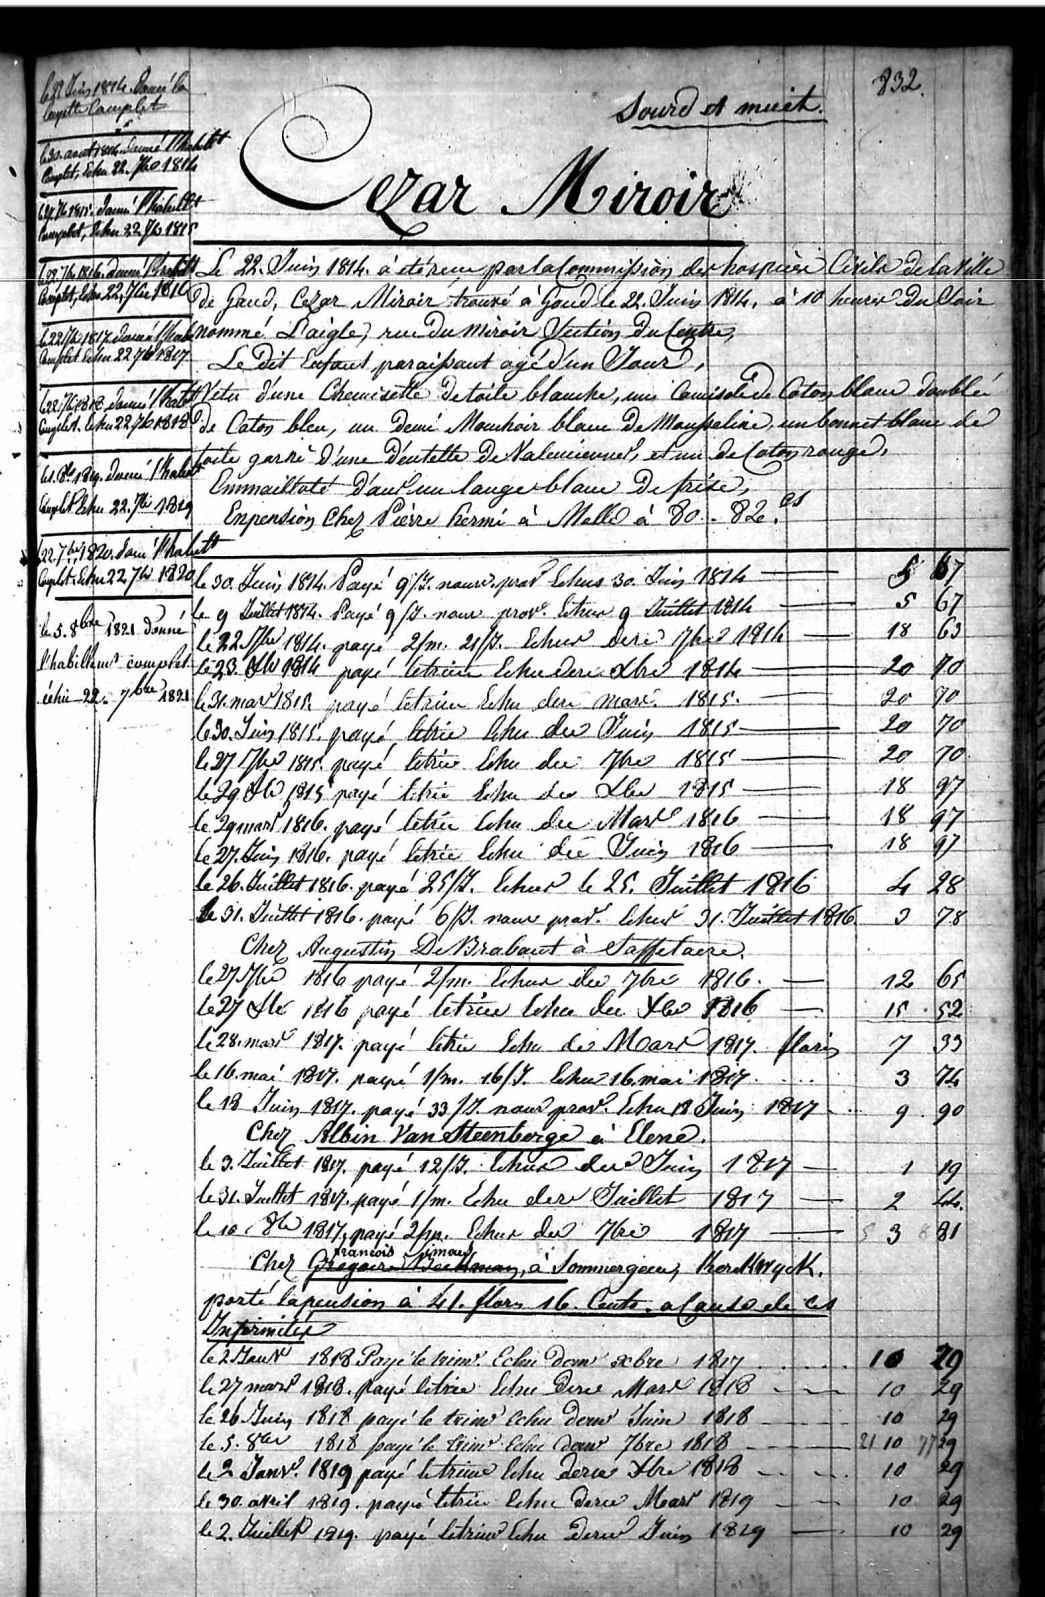 832.
Sourd et muet.
Cezar Miroir
le 22 Juin 1814. Donné la
layette Complet
le 30. aout 1814. donné l'habillt
Complet, Echu 22. 7bre 1814
donné l'habillt
Complet, Echu 22 7bre 1815
le 22 7bre 1816. donné l'habillt
Complet, Echu 22, 7bre 1816
le 22 7bre 1817 donné l'habill
Complet Echu 22 7bre 1817.
le 22 7bre 1818 donné l'habillt
Complet. Echu 22 7bre 1818
1819. donné l'habillt
Complet Echu 22. 7bre 1819
22. 7bre 1820. donné l'habillt
Complet. Echu 22 7bre 1820
le 5. 8bre 1821 donné
l'habillemt complet
échu 22. 7bre 1821
Le 22. Juin 1814. à été reçu par la Commission des hospices Civils de la Ville
de Gand, Cezar Miroir trouvé à Gand le 22. Juin 1814, à 10 heures Du Soir
nommé L'aigle, rue Du Miroir Section Du Centre,
Le Dit Enfant paraissant agé d'un Jour,
Vetu d'une Chemisette De toile blanche, une Camisole De Coton blanc doublé
de Coton bleu, un demi Mouchoir blanc De Mousseline, un bonnet blanc de
toile garni D'une Dentelle De Valenciennes, et un de Coton rouge,
Emmailloté Dans un lange blanc De frise,
En pension Chez Pierre hermi à Melle à 80.. 82. Cs
le 30. Juin 1814. Payé 9/J. nour prov Echus 30. Juin 1814 5 67
le 9 Juillet 1814. Payé 9/J. nour prov. Echus 9 Juillet 1814 5 67
le 22 7bre 1814. payé 2/m. 21/J. Echus der 7bre 1814 18 63
le 23. Xbre 1814 payé le trim Echu der Xbre 1814 20 70
le 31. mars 1815 payé le trim Echu der mars 1815. 20 70
le 30. Juin 1815. payé le trim Echu der Juin 1815 20 70
le 27 7bre 1815. payé le trim Echu der 7bre 1815 20 70
le 29 Xbre 1815 payé le trim Echu der Xbre 1815 18 97
le 29 mars 1816. payé le trim Echu der Mars 1816 18 97
le 27. Juin 1816. payé le trim Echu der Juin 1816 18 97
le 26. Juillet 1816. payé 25/J. Echus le 25. Juillet 1816 4 28
le 31. Juillet 1816. payé 6/J. nour prov. Echus 31. Juillet 1816 3 78
Chez Augustin De Brabant à Saffelaere.
le 27 7bre 1816 payé 2/m. Echus der 7bre 1816. 12 65
le 27 Xbre 1816 payé le trim Echu der Xbre 1816 15 52
le 28. mars 1817. payé le trim Echu der Mars 1817. florins 7 33
le 16. mai 1817. payé 1/m. 16/J. Echu 16. mai 1817 3 74
le 18 Juin 1817. payé 33/J. nour prov. Echu 18 Juin 1817 9 90
Chez Albin Van Steenberge à Elene.
le 3. Juillet 1817. payé 12/J. Echus der Juin 1817 1 19
le 31. Juillet 1817. payé 1/m. Echu der Juillet 1817 2 44
le 10 8bre 1817, payé 2/m. Echus der 7bre 1817 3 81
francois
Chez Gregoire Beekman, à Sommergem,
porté la pension à 41. flors 16. Cents. a Cause de ces
Infirmités
le 2 Janvr 1818 Payé le trimr. Echu dernr xbre 1817 10 29
le 27 mars 1818. payé le trim Echu der Mars 1818 10 29
le 26 Juin 1818 payé le trimr echu dernr Juin 1818 10 29
le 5. 8bre 1818 payé le trimr Echu dernr 7bre 1818 21 10 77 29
le 2 Janvr. 1819 payé le trim Echu der Xbre 1818 10 29
le 30. avril 1819. payé le trim Echu der Mars 1819 10 29
le 2. Juillet 1819. payé le trim Echu der Juin 1819 10 29